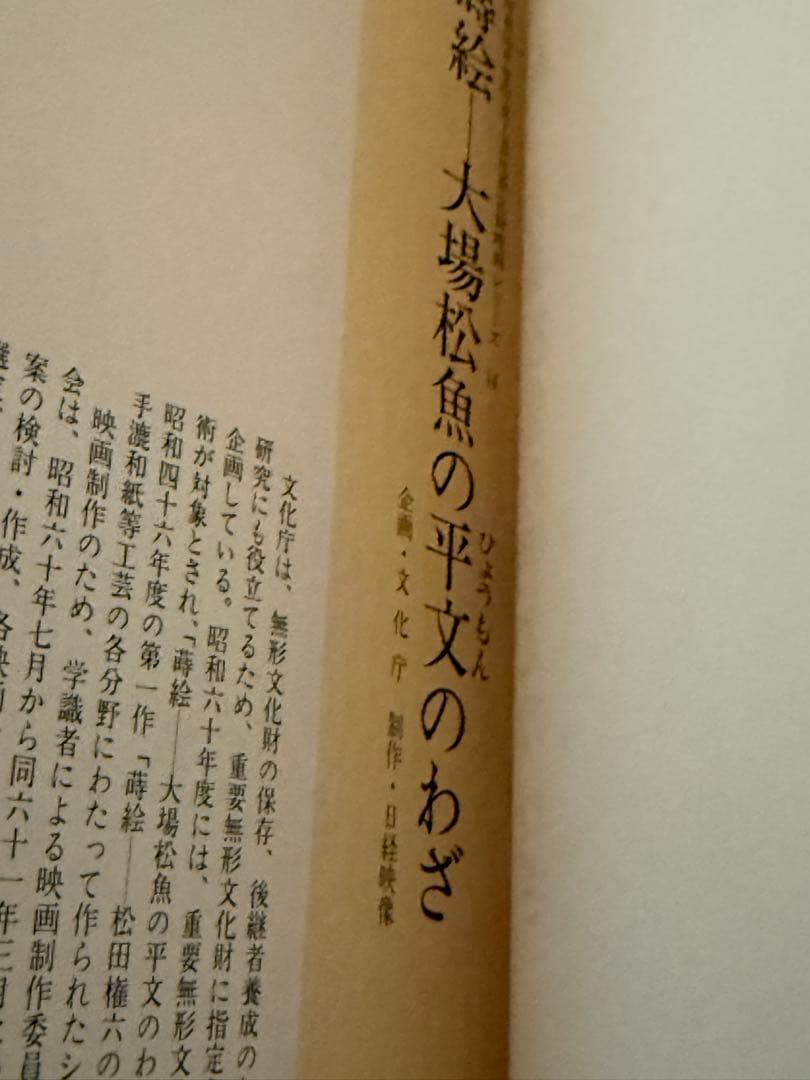 蒔絵──大場松魚の平文のわざ
ひょうもん
企画・文化庁 制作・日経映像
文化庁は、無形文化財の保存、後継者養成の
研究にも役立てるため、重要無形文化財に指定
企画している。昭和六十年度には、重要無形文
術が対象とされ、「蒔絵──大場松魚の平文のわ
昭和四十六年度の第一作「蒔絵──松田権六の
手漉和紙等工芸の各分野にわたって作られたシ
映画制作のため、学識者による映画制作委員
会は、昭和六十年七月から同六十一年三月
案の検討・作成、各映画